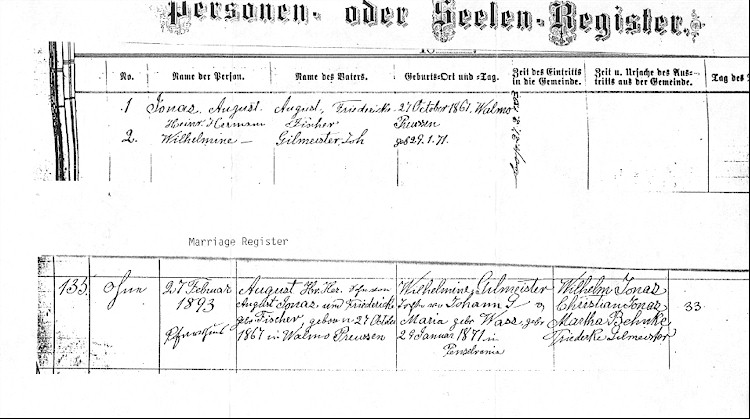 Personen- oder Seelen-Register.
No. Name der Person. Name des Vaters. Geburts-Ort und -Tag. Zeit des Eintritts in die Gemeinde. Zeit u. Ursache des Aus- tritts aus der Gemeinde. Tag des
1 Jonas, August. August, Friedericke 27 October 1867, Walmo
Heinr. Hermann Fischer Preussen
2. Wilhelmine — Gilmeister, Joh geb 29. 1. 71.
Marriage Register
135. Ohne 27 Februar August Hr. Her. Sohn von Wilhelmine Gilmeister Wilhelm Jonas
1893 August Jonas und Friedericke Johann Christian Jonas 33
Pfarrhaus geb Fischer, geboren 27 October Maria geb Wass, geb Martha Behnke
1867 in Walmo Preussen 29 Januar 1871 in Friederike Gilmeister
Pensilvania